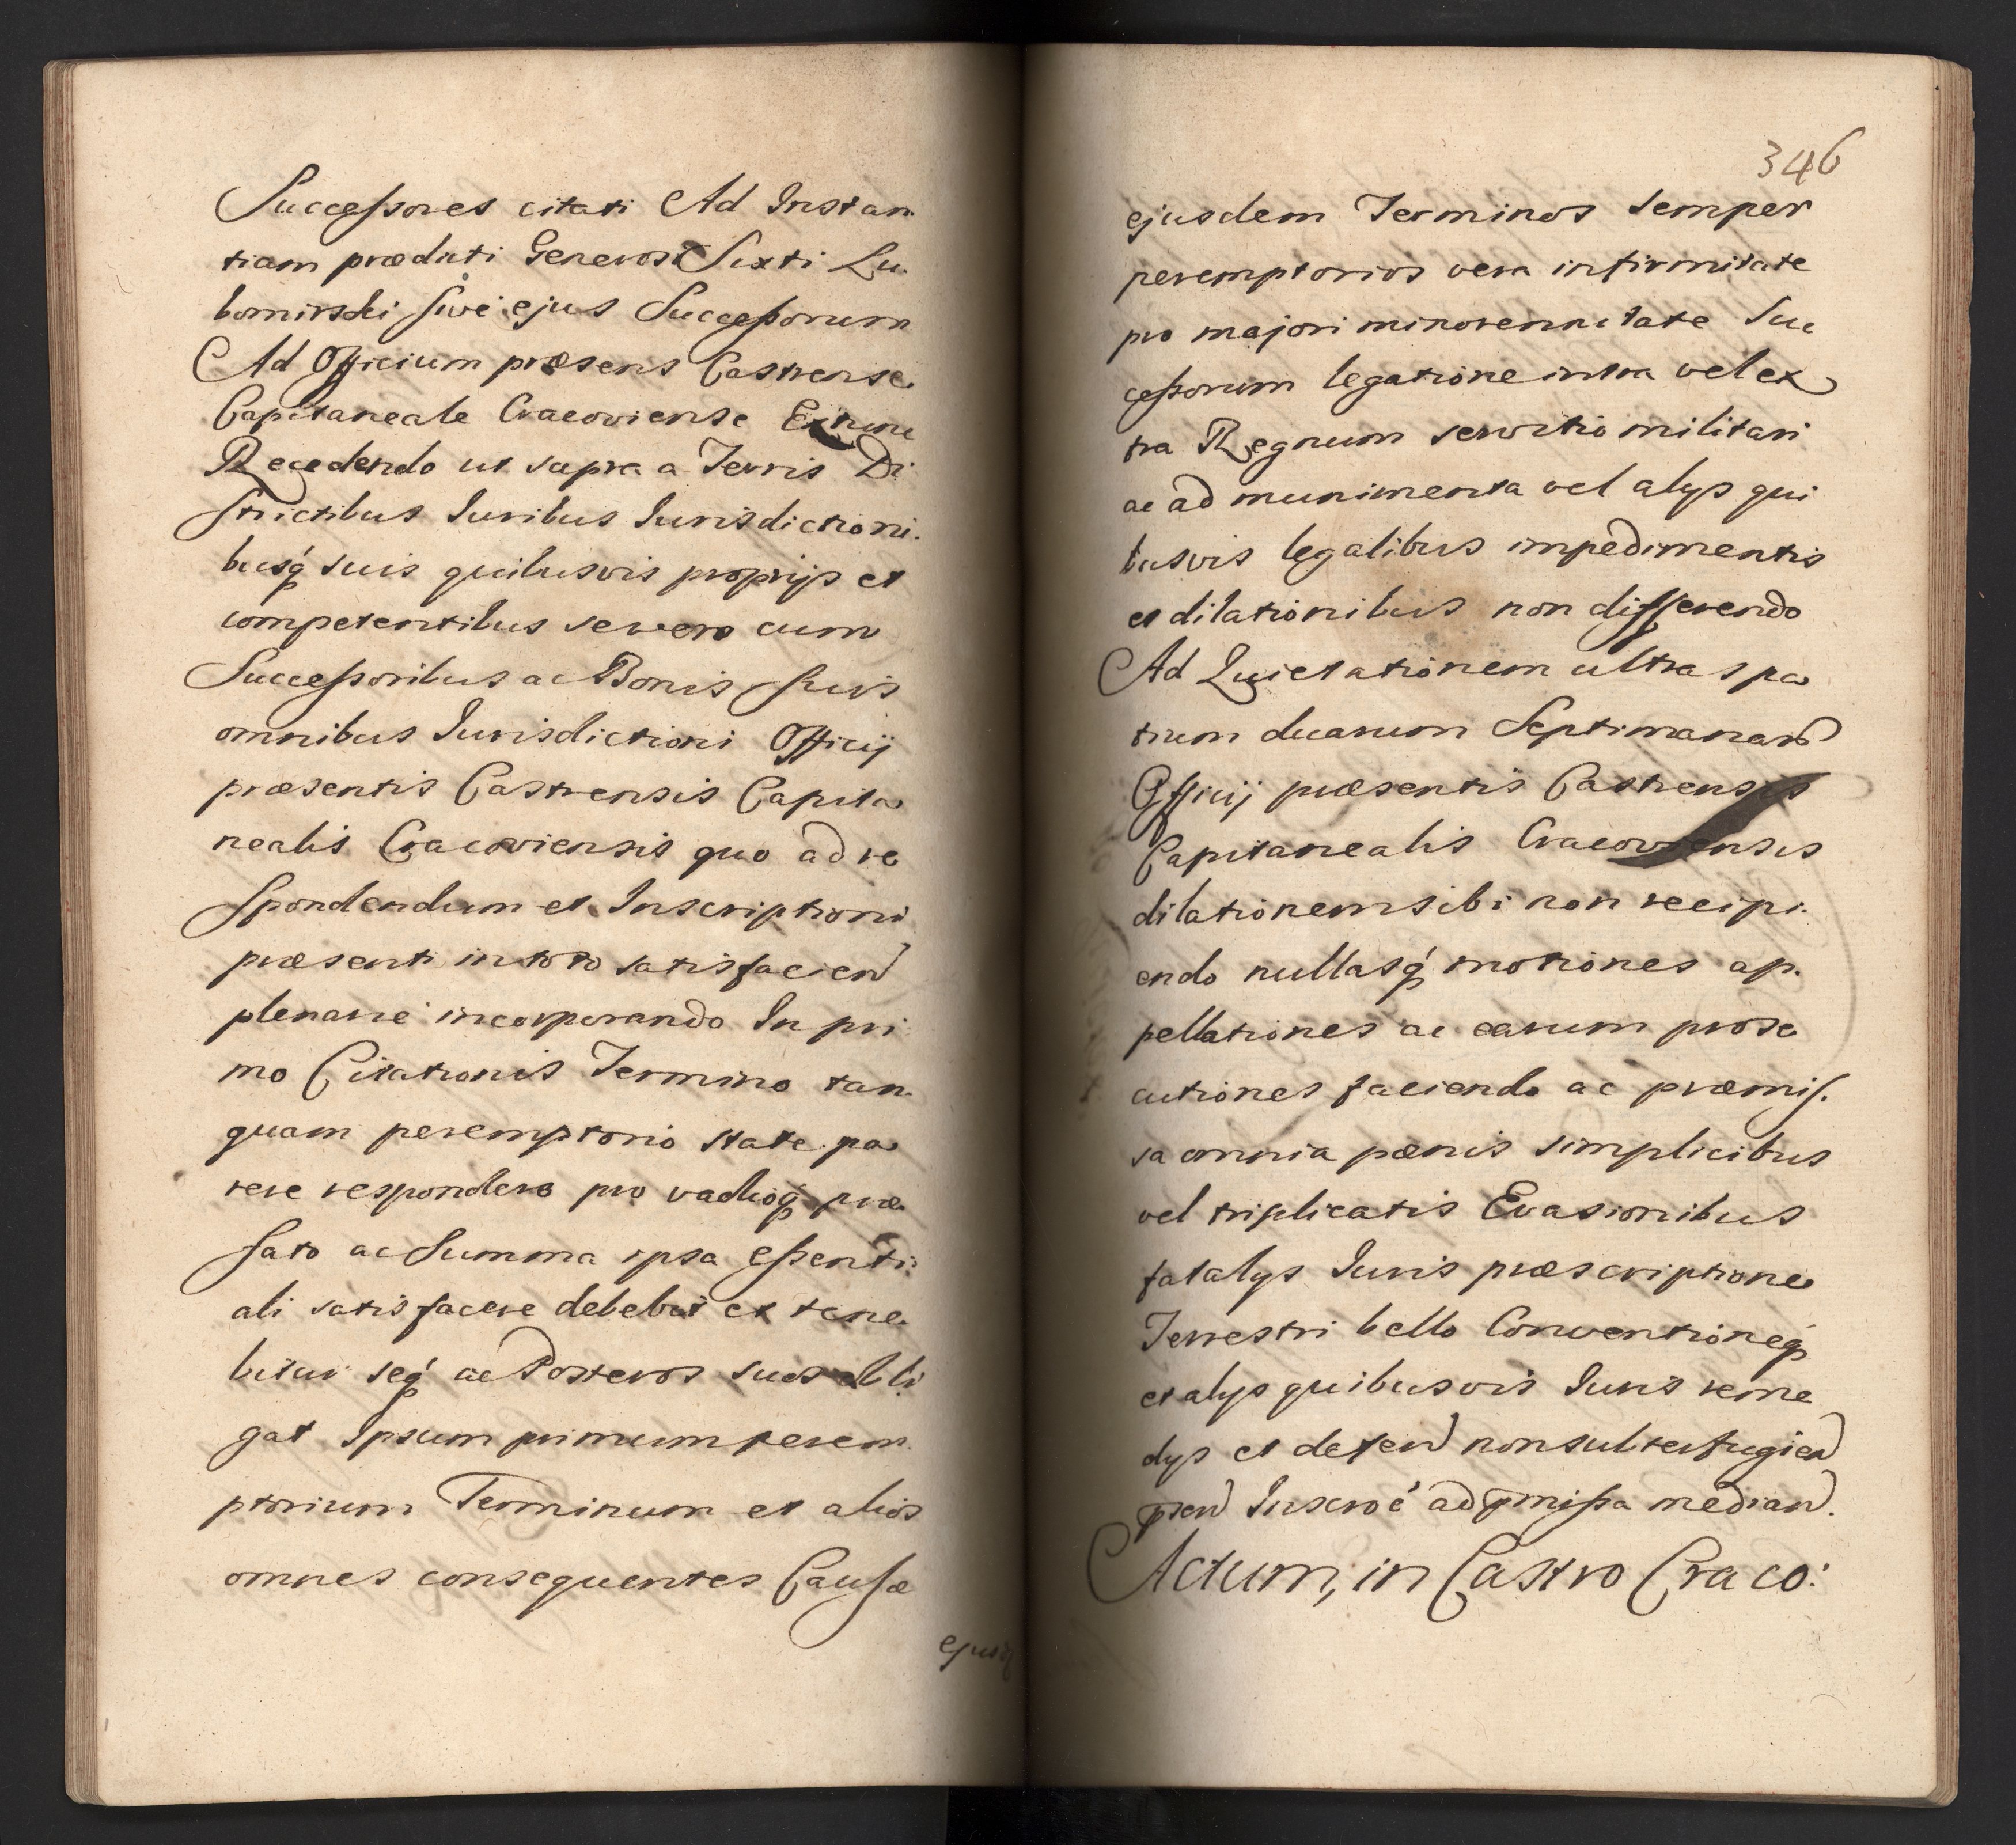 Successores citati Ad Instan
tiam prædicti Generosi Sixti Lu.
bomirski sive ejus Successorum
Ad Officium præsens Castrense
Capitaneale Cracoviense Extunc
Recedendo ut supra a Terris Di.
strictibus Iuribus Iurisdictioni.
busq́ suis quibusvis proprijs et
competentibus severo cum
Successoribus ac Bonis suis
omnibus Iurisdictioni Officij
præsentis Castrensis Capita
nealis Cracoviensis quo ad re
spondendum et Inscriptioni
præsenti in toto satisfacien
plenarie incorporando In pri
mo Citationis Termino tan.
quam peremptorio stare pa
rere respondere pro vadioq́ præ
fato ac Summa ipsa essenti:
ali satisfacere debebit et tene.
bitur seq́ ac Posteros suos obli
gat Ipsum primum perem.
ptorium Terminum et alios
omnes consequentes Causæ
ejusd
346
ejusdem Terminos semper
peremptorios vera infirmitate
pro majori minorennitate Suc
cessorum legatione intra vel ex
tra Regnum servitio militari
ac ad munimenta vel alys qui
busvis legalibus impedimentis
et dilationibus non differendo
Ad Quietationem ultra spa
tium duarum Septimanar
Officij præsentis Castrensis
Capitanealis Cracoviensis
dilationem sibi non recipi.
endo nullasq́ motiones ap.
pellationes ac earum prose
cutiones faciendo ac præmis.
sa omnia pœnis simplicibus
vel triplicatis Evasionibus
fatalys Iuris præscriptione
Terrestri bello Conventioneq́
et alys quibusvis Iuris reme
dys et defen non subterfugien
pṡen Inscroė ad pmissa median.
Actum, in Castro Craco: